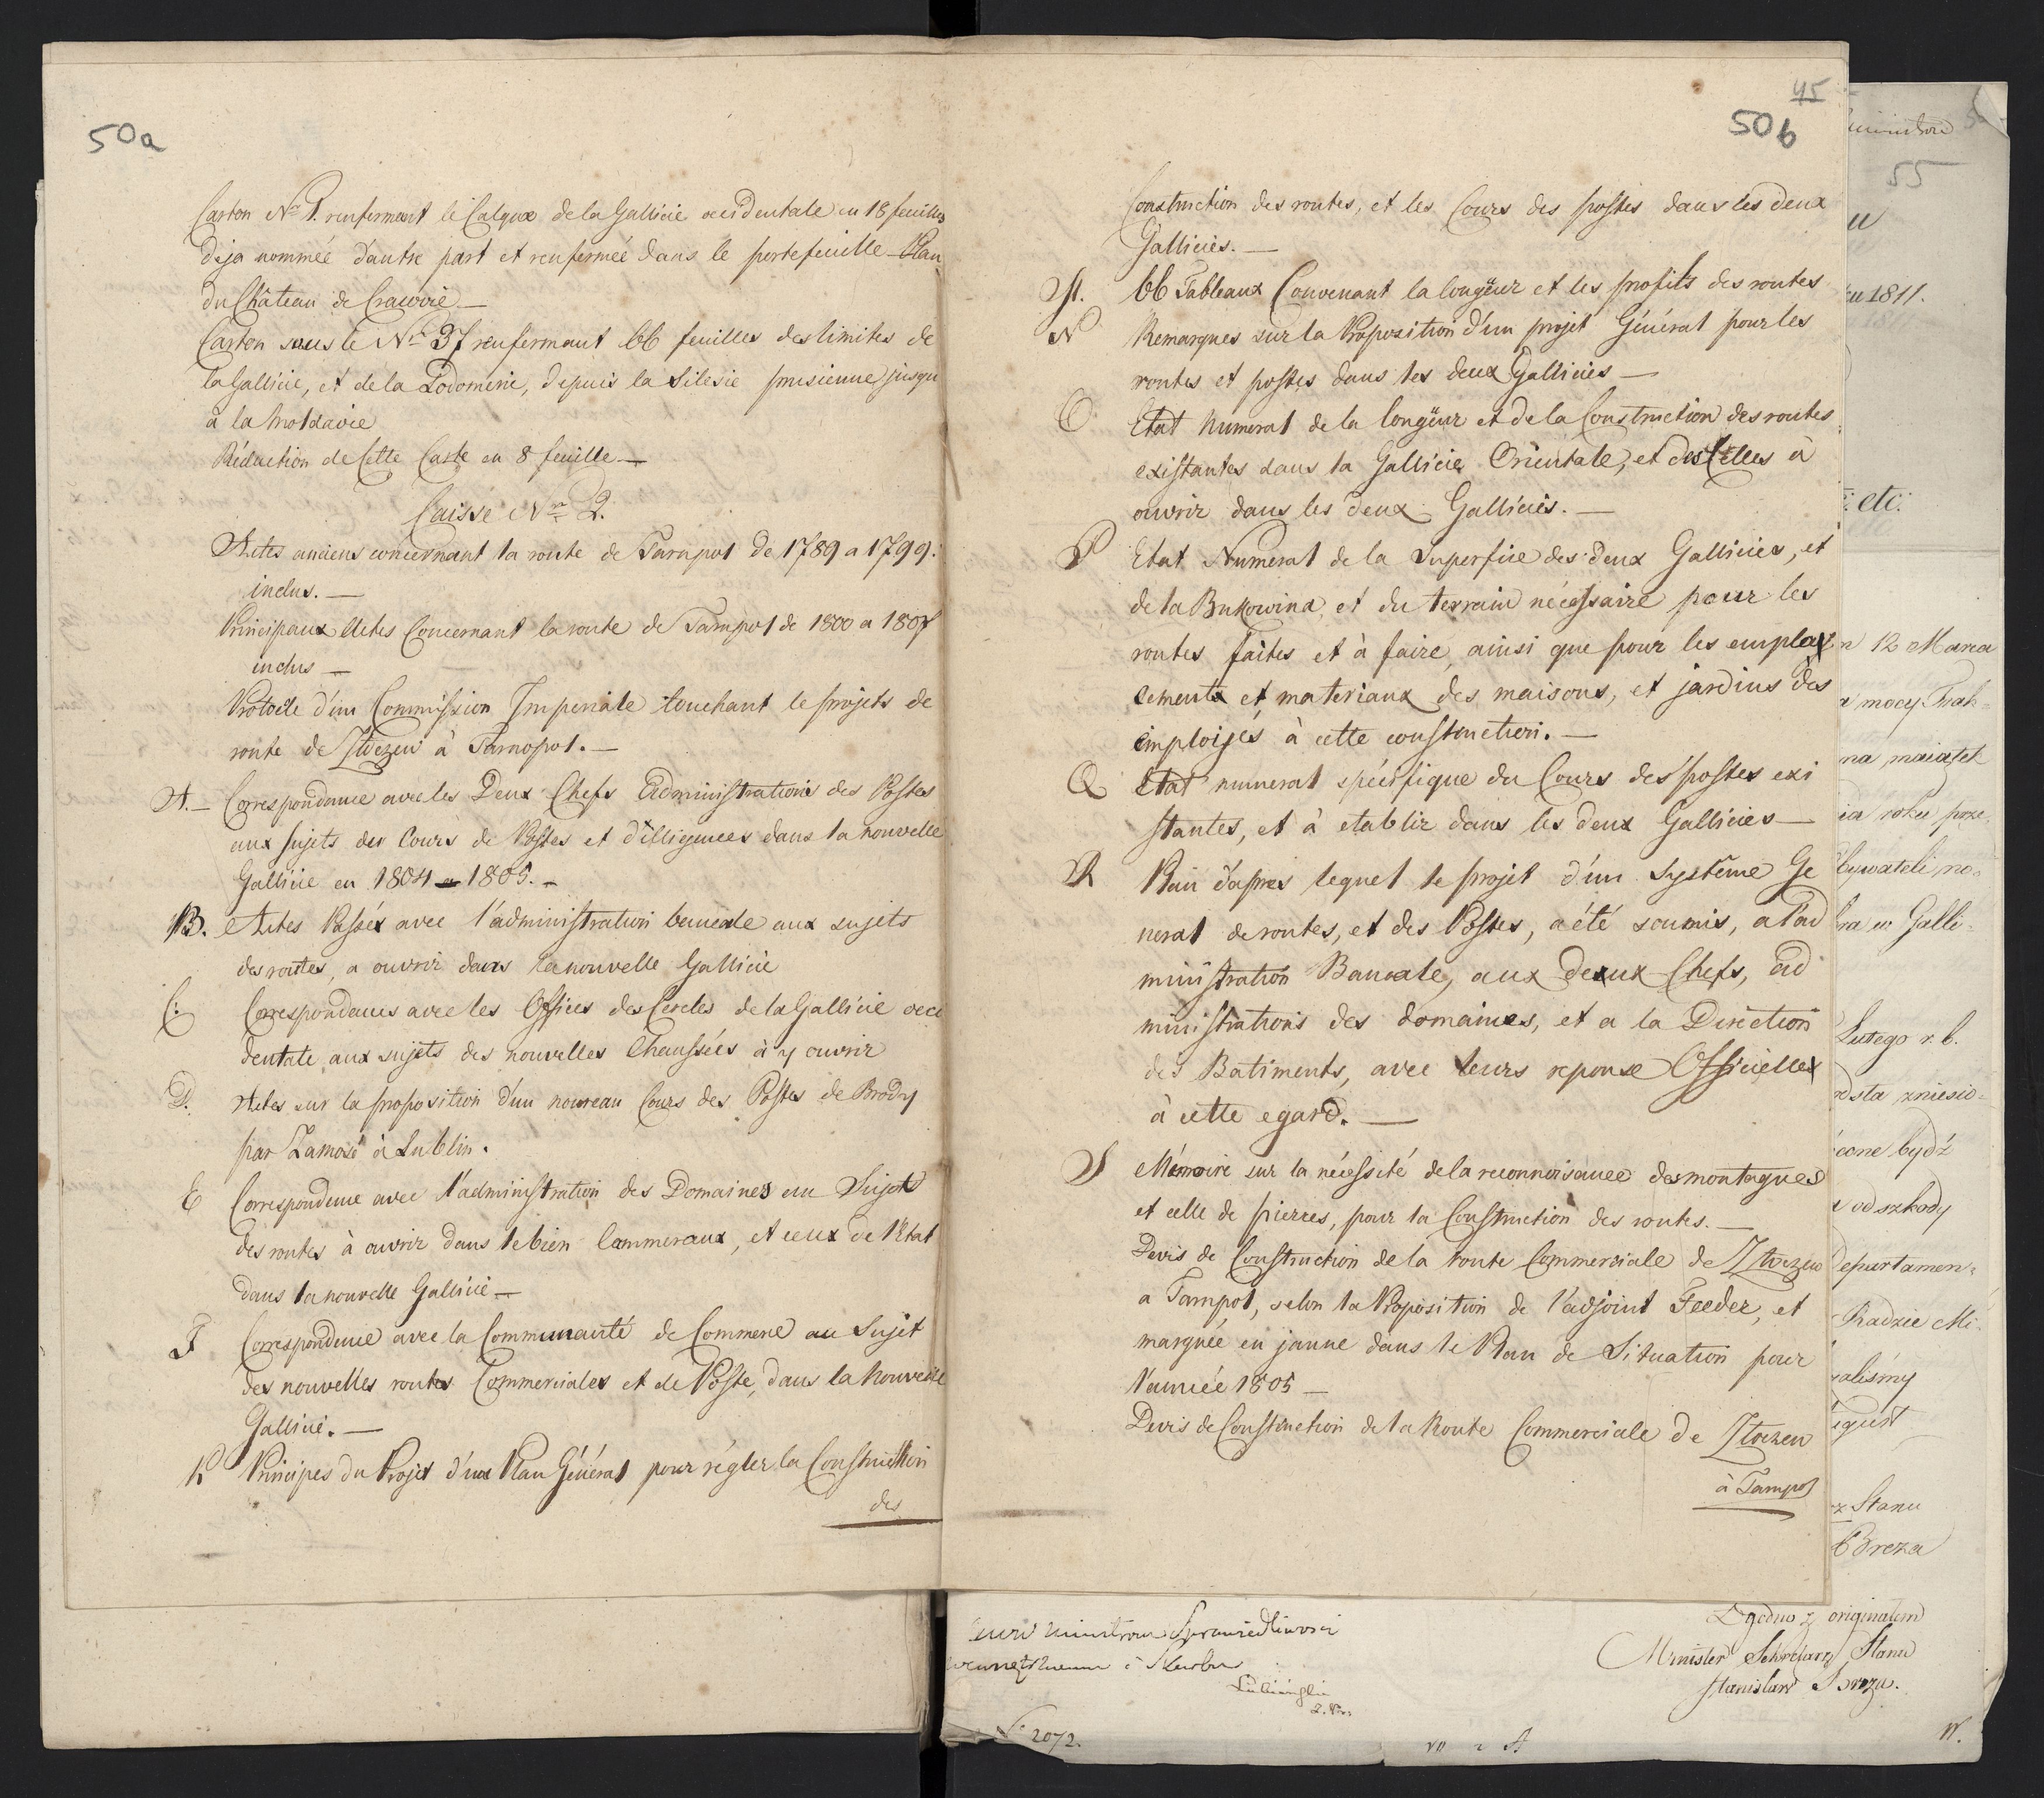 50a
Carton No 1. renfermant le Calque de la Gallicie occidentale en 18 feuilles
deja nommée d'autre part et renfermée dans le portefeuille Plan
du Château de Cracovie —
Carton sous le No 37 renfermant 66 feuilles des limites de
la Gallicie, et de la Lodomerie, depuis la Silesie prusienne jusqu
à la Moldavie
Réduction de Cette Carte en 8 feuille —
Caisse Nro 2.
Actes anciens concernant la route de Tarnpol de 1789 a 1799.
inclus. —
Principaux Actes Concernant la route de Tarnpol de 1800 a 1807
inclus —
Protocle d'un Commission Imperiale touchant le projets de
route de Zloczew à Tarnopol. —
A. — Correspondance avec les Deux Chefs Administrations des Postes
aux sujets des Cours de Postes et dilligences dans la nouvelle
Gallicie en 1804 a 1805. —
B. Actes Passés avec l'administration bancale aux sujets
des routes, a ouvrir dans la nouvelle Gallicie
C: Correspondances avec les Offices des Cercles de la Gallicie occi
dentale aux sujets des nouvelles Chaussées à y ouvrir
D. Actes sur la proposition d'un nouveau Cours des Postes de Brody
par Zamosc à Lublin.
E Correspondence avec l'administration des Domaines au Sujets
des routes à ouvrir dans le bien Cammeraux, et ceux de l'Etat
dans la nouvelle Gallicie —
F Correspondence avec la Communauté de Commerce au Sujet
des nouvelles routes Commerciales et de Poste, dans la nouvelle
Gallicie. —
K Principes du Projet d'un Plan Général pour régler la Construction
des
45
50b
Construction des routes, et les Cours des postes dans les deux
Gallicies. —
M. 66 Tableaux Convenant la longueur et les profils des routes
N Remarques sur la Proposition d'un projet Général pour les
routes et postes dans les deux Gallicies —
O Etat numeral de la longueur et de la Construction des routes
existantes dans la Gallicie Orientale, et des Celles à
ouvrir dans les deux Gallicies. —
P Etat Numeral de la Superficie des deux Gallicies, et
de la Bukowina, et du terrain nécessaire pour les
routes faites et à faire, ainsi que pour les empla
cements et materiaux des maisons, et jardins des
emploiés à cette construction. —
Q Etat numeral spécifique du Cours des postes exi
stantes, et à etablir dans les deux Gallicies —
R Plan d'apres lequel le projet d'un Système Ge
neral de routes, et des Postes, a été soumis, a l'ad
ministration Bancale, aux deux Chefs, ad
ministrations des domaines, et a la Direction
des Batiments, avec leurs reponse Officielles
à cette egard. —
S Mémoire sur la nécessité de la reconnoisance des montagnes
et celle de pierres, pour la Construction des routes. —
Devis de Construction de la route Commerciale de Zloczew
a Tarnpol, selon la Proposition de l'adjoint Feeder, et
marquée en jaune dans le Plan de Situation pour
l'année 1805 —
Devis de Construction de la Route Commerciale de Zloczew
à Tarnpol
55
1811.
etc:
12 Marca
mocy Trak=
na maiątek
roku prze,
Obywateli no=
w Galli=
Lutego r. b.
zniesio=
bydź
od szkody
Departamen=
Radzie Mi=
Stanu
Breza
Sprawiedliwości
i Skarbu
No 2072.
Zgodno z originałem
Minister Sekretarz Stanu
Stanisław Breza.